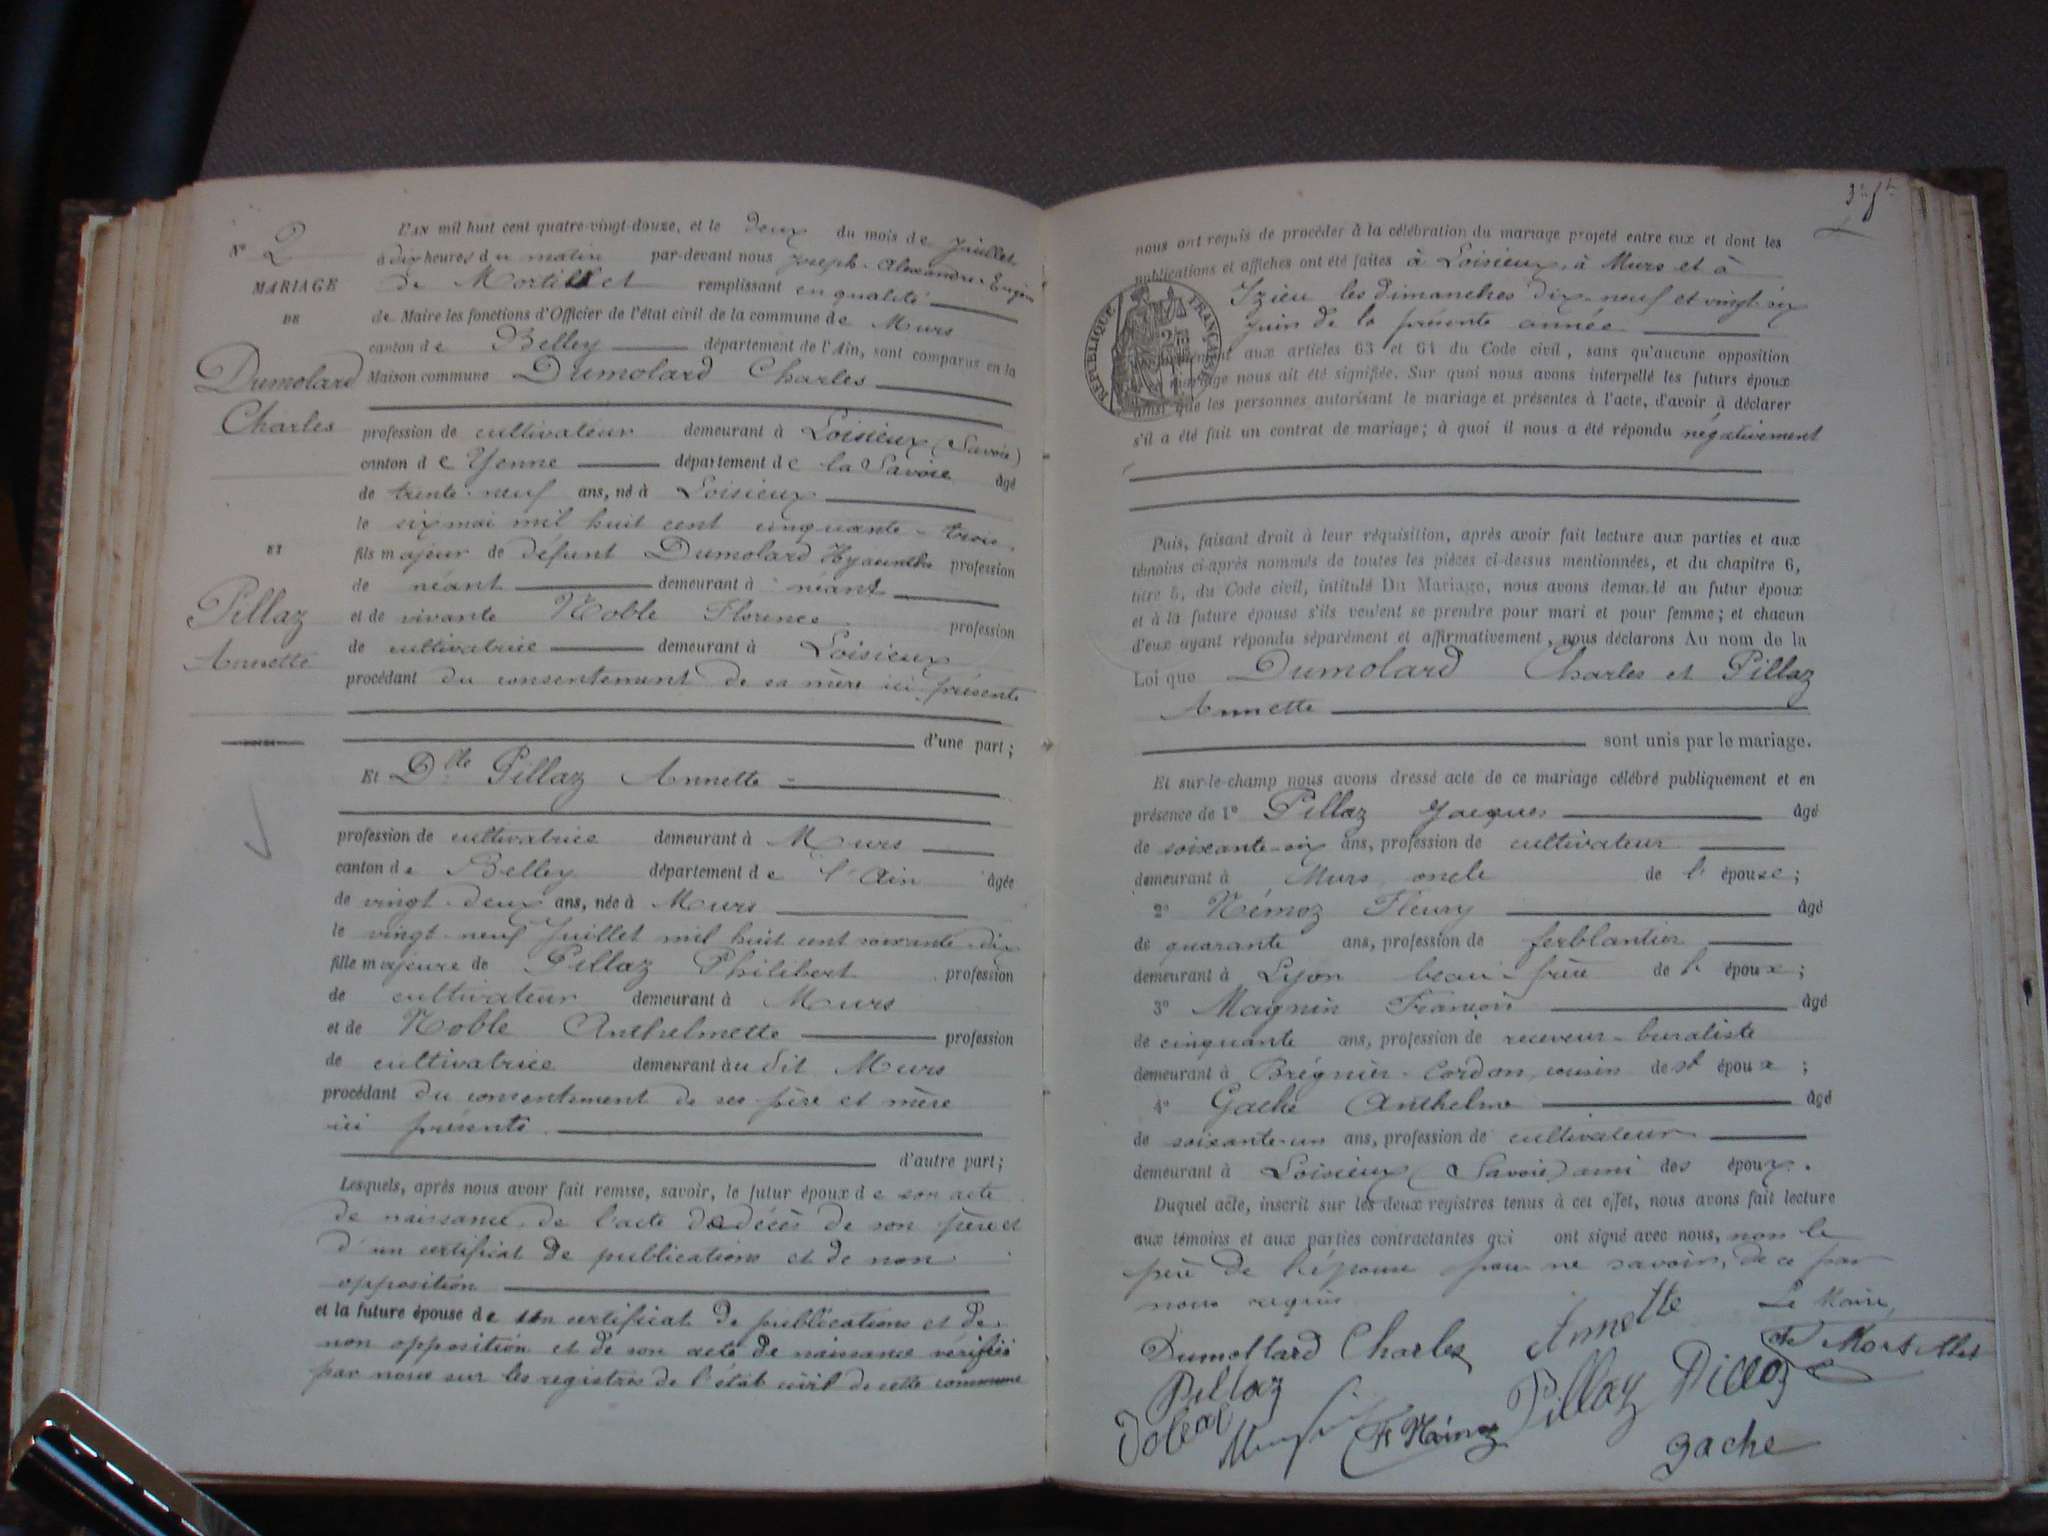 N° 2
MARIAGE
DE
Dumolard
Charles
ET
Pillaz
Annette
L'AN mil huit cent quatre-vingt-douze, et le deux du mois de Juillet
à dix heures du matin par-devant nous Joseph-Alexandre-Eugène
de Mortillet remplissant en qualité
de Maire les fonctions d'Officier de l'état civil de la commune de Murs
canton de Belley département de l'Ain, sont comparus en la
Maison commune Dumolard Charles
profession de cultivateur demeurant à Loisieux (Savoie)
canton de Yenne département de la Savoie âgé
de trente-neuf ans, né à Loisieux
le six mai mil huit cent cinquante-trois
fils majeur de défunt Dumolard Hyacinthe profession
de néant demeurant à néant
et de vivante Noble Florence profession
de cultivatrice demeurant à Loisieux
procédant du consentement de sa mère ici présente
d'une part;
Et Dlle Pillaz Annette
profession de cultivatrice demeurant à Murs
canton de Belley département de l'Ain âgée
de vingt-deux ans, née à Murs
le vingt-neuf Juillet mil huit cent soixante-dix
fille majeure de Pillaz Philibert profession
de cultivateur demeurant à Murs
et de Noble Anthelmette profession
de cultivatrice demeurant au dit Murs
procédant du consentement de ses père et mère
ici présents
d'autre part;
Lesquels, après nous avoir fait remise, savoir, le futur époux de son acte
de naissance, de l'acte de décès de son père et
d'un certificat de publications et de non
opposition
et la future épouse de un certificat de publications et de
non opposition et de son acte de naissance vérifié
par nous sur les registres de l'état civil de cette commune
nous ont requis de procéder à la célébration du mariage projeté entre eux et dont les
publications et affiches ont été faites à Loisieux, à Murs et à
Izieu les dimanches dix-neuf et vingt-six
Juin de la présente année
RÉPUBLIQUE FRANÇAISE
aux articles 63 et 64 du Code civil, sans qu'aucune opposition
mariage nous ait été signifiée. Sur quoi nous avons interpellé les futurs époux
ainsi que les personnes autorisant le mariage et présentes à l'acte, d'avoir à déclarer
s'il a été fait un contrat de mariage; à quoi il nous a été répondu négativement
Puis, faisant droit à leur réquisition, après avoir fait lecture aux parties et aux
témoins ci-après nommés de toutes les pièces ci-dessus mentionnées, et du chapitre 6,
titre 5, du Code civil, intitulé Du Mariage, nous avons demandé au futur époux
et à la future épouse s'ils veulent se prendre pour mari et pour femme; et chacun
d'eux ayant répondu séparément et affirmativement, nous déclarons Au nom de la
Loi que Dumolard Charles et Pillaz
Annette
sont unis par le mariage.
Et sur-le-champ nous avons dressé acte de ce mariage célébré publiquement et en
présence de 1° Pillaz Jacques âgé
de soixante-six ans, profession de cultivateur
demeurant à Murs, oncle de l'épouse;
2° Némoz Fleury âgé
de quarante ans, profession de ferblantier
demeurant à Lyon beau-frère de l'époux;
3° Magnin François âgé
de cinquante ans, profession de receveur-buraliste
demeurant à Brégnier-Cordon, cousin de l'époux;
4° Gache Anthelme âgé
de soixante-un ans, profession de cultivateur
demeurant à Loisieux (Savoie) ami des époux.
Duquel acte, inscrit sur les deux registres tenus à cet effet, nous avons fait lecture
aux témoins et aux parties contractantes qui ont signé avec nous, non le
père de l'épouse pour ne savoir, de ce par
nous requis
Le Maire,
Dumollard Charles Annette de Mortillet
Pillaz Pillaz Pillaz
F Némoz
gache